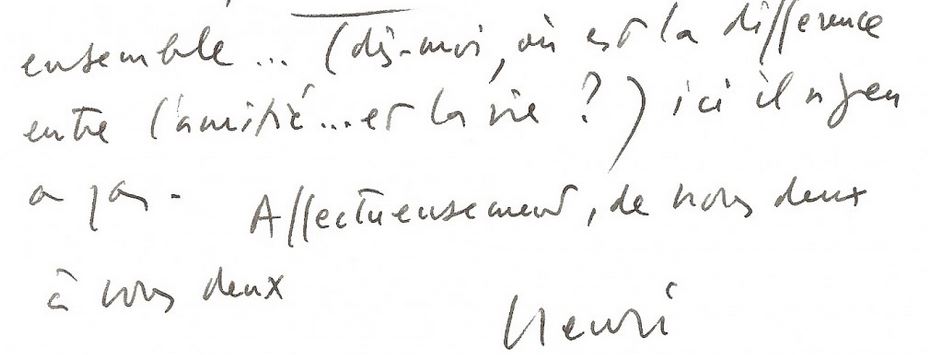 ensemble... (dis-moi, où est la différence
entre l'amitié...et la vie ?) ici il n'y en
a pas.  Affectueusement, de nous deux
à vous deux
Henri